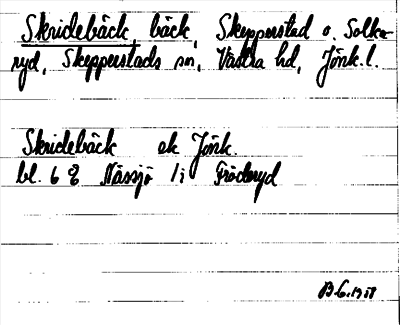 Skridebäck, bäck, Skepperstad o. Solka-
ryd, Skepperstads sn, Västra hd, Jönk. l.
Skridebäck ek Jönk.
bl. 6 Nässjö Fröderyd
1958